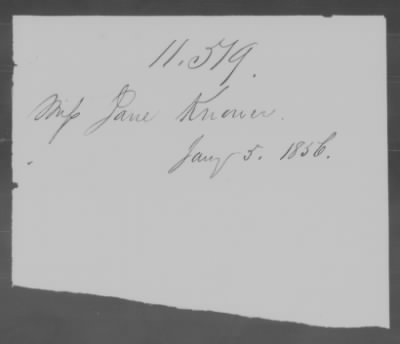 11.519.
Miss Jane Knower.
Jany 5. 1856.